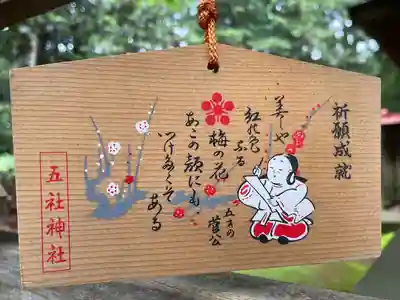 祈願成就
美しや
紅の色
なる
梅の花
あこの顔にも
つけたくぞ
ある
五才の
菅公
五社神社